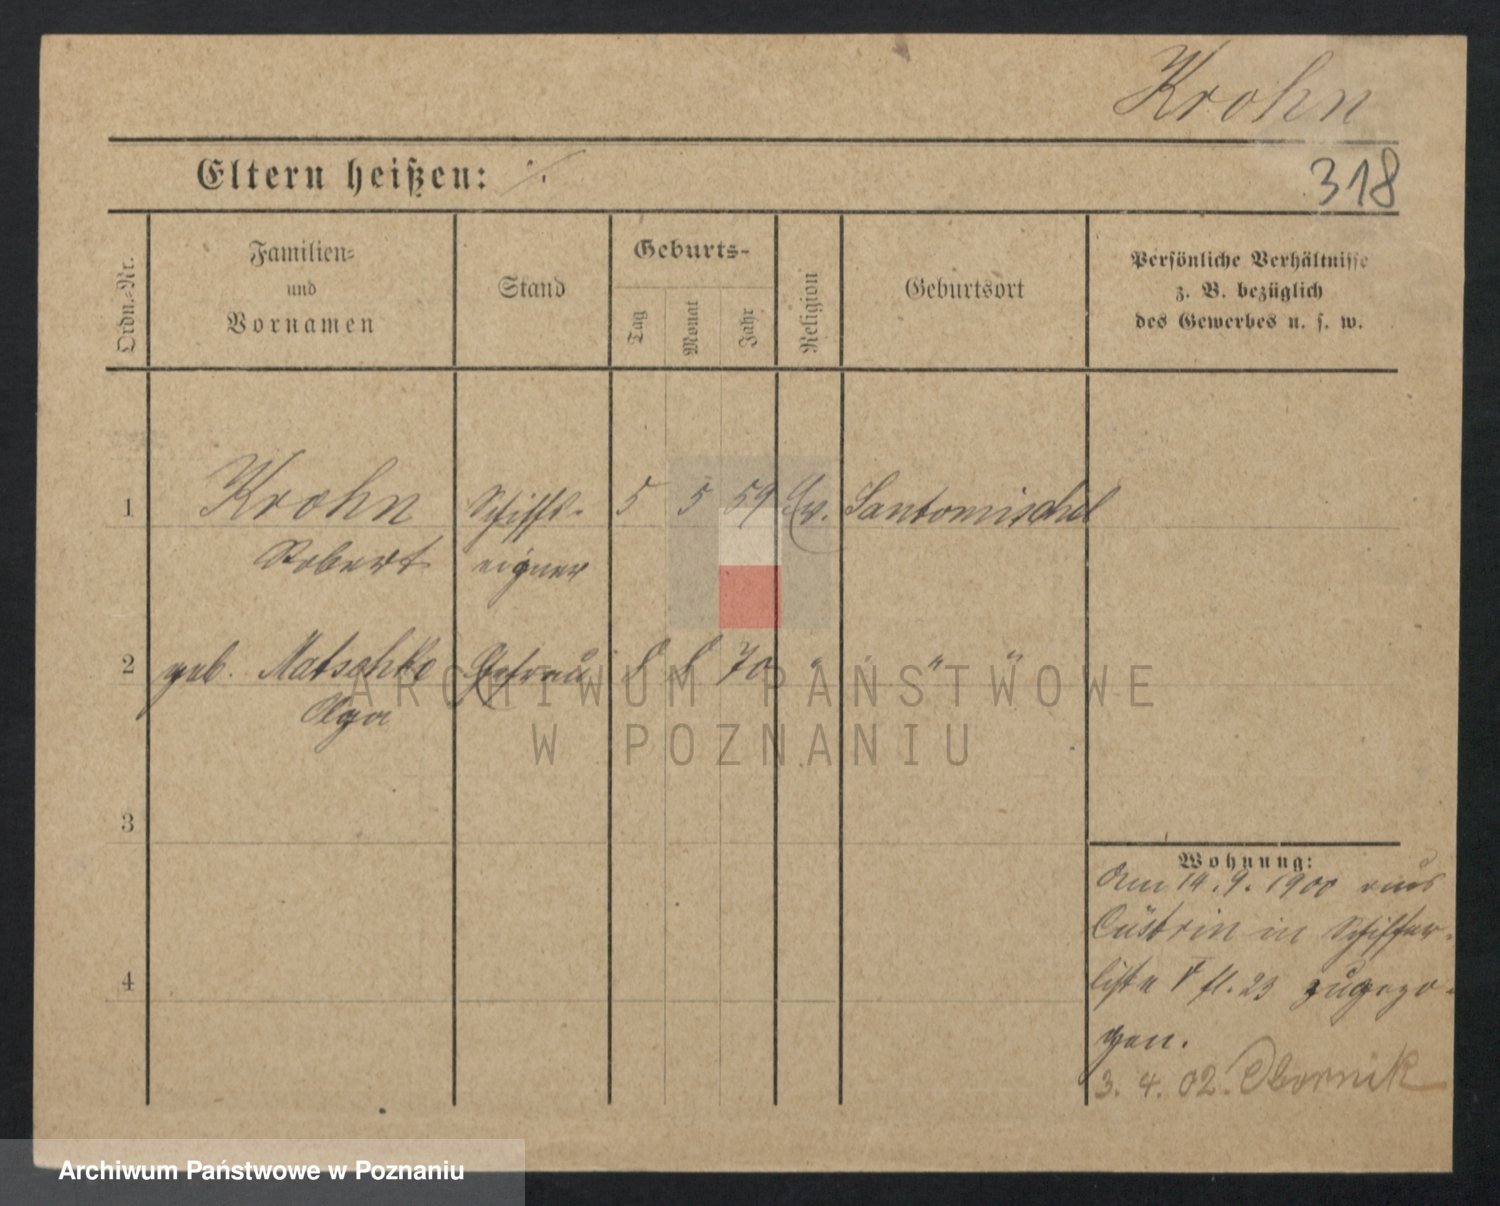 Krohn
318
Eltern heißen: ·/.
Ordn.-Nr.
Familien-
und
Vornamen
Stand
Geburts-
Tag
Monat
Jahr
Religion
Geburtsort
Persönliche Verhältnisse
z. B. bezüglich
des Gewerbes u. s. w.
1 Krohn Schiffs- 5 5 59 Ev. Santomischel
Robert eigner
2 geb. Matschke Ehefrau 8 8 70 " " "
Olga
3
4
Wohnung:
Am 14.9.1900 aus
Cüstrin in Schiffer-
liste V fl. 23 zugezo-
gen.
3.4.02. Obornik
ARCHIWUM PAŃSTWOWE
W POZNANIU
Archiwum Państwowe w Poznaniu